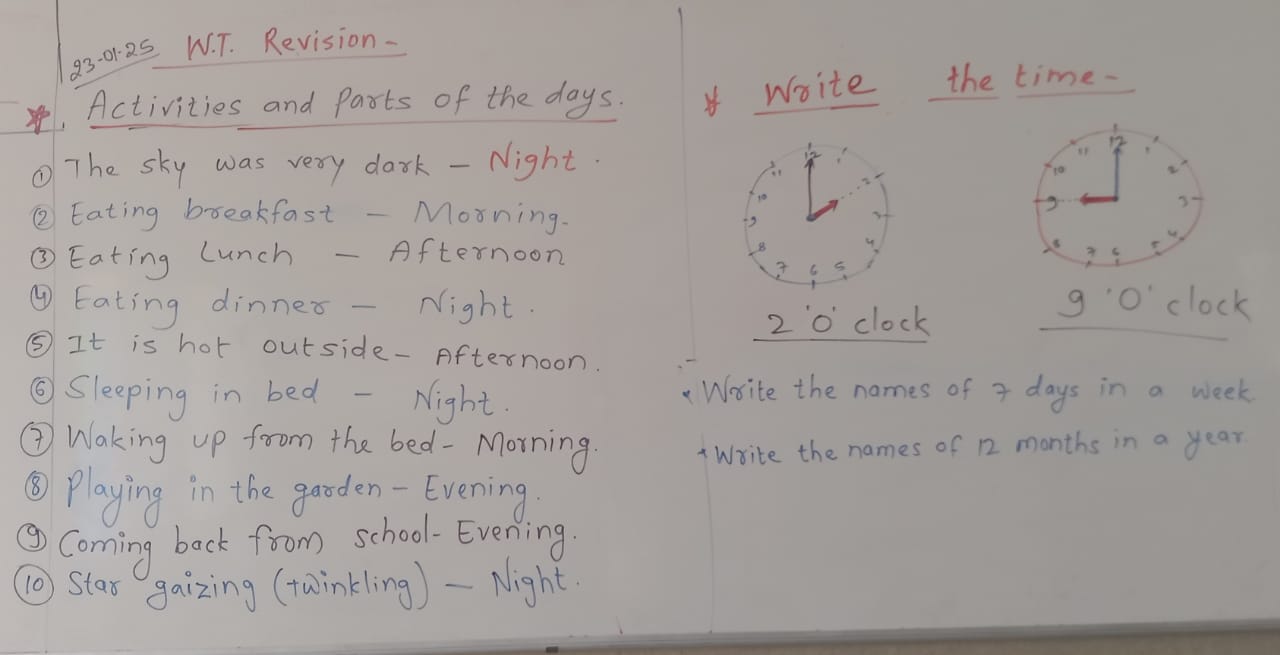 23-01-25 W.T. Revision -
* Activities and Parts of the days.
① The sky was very dark - Night.
② Eating breakfast - Morning.
③ Eating Lunch - Afternoon
④ Eating dinner - Night.
⑤ It is hot outside - Afternoon.
⑥ Sleeping in bed - Night.
⑦ Waking up from the bed - Morning.
⑧ Playing in the garden - Evening.
⑨ Coming back from school - Evening.
⑩ Star gaizing (twinkling) - Night.
* Write the time -
12 1 2 3 4 5 6 7 8 9 10 11
2 'O' clock
12 1 2 3 4 5 6 7 8 9 10 11
9 'O' clock
* Write the names of 7 days in a week.
* Write the names of 12 months in a year.